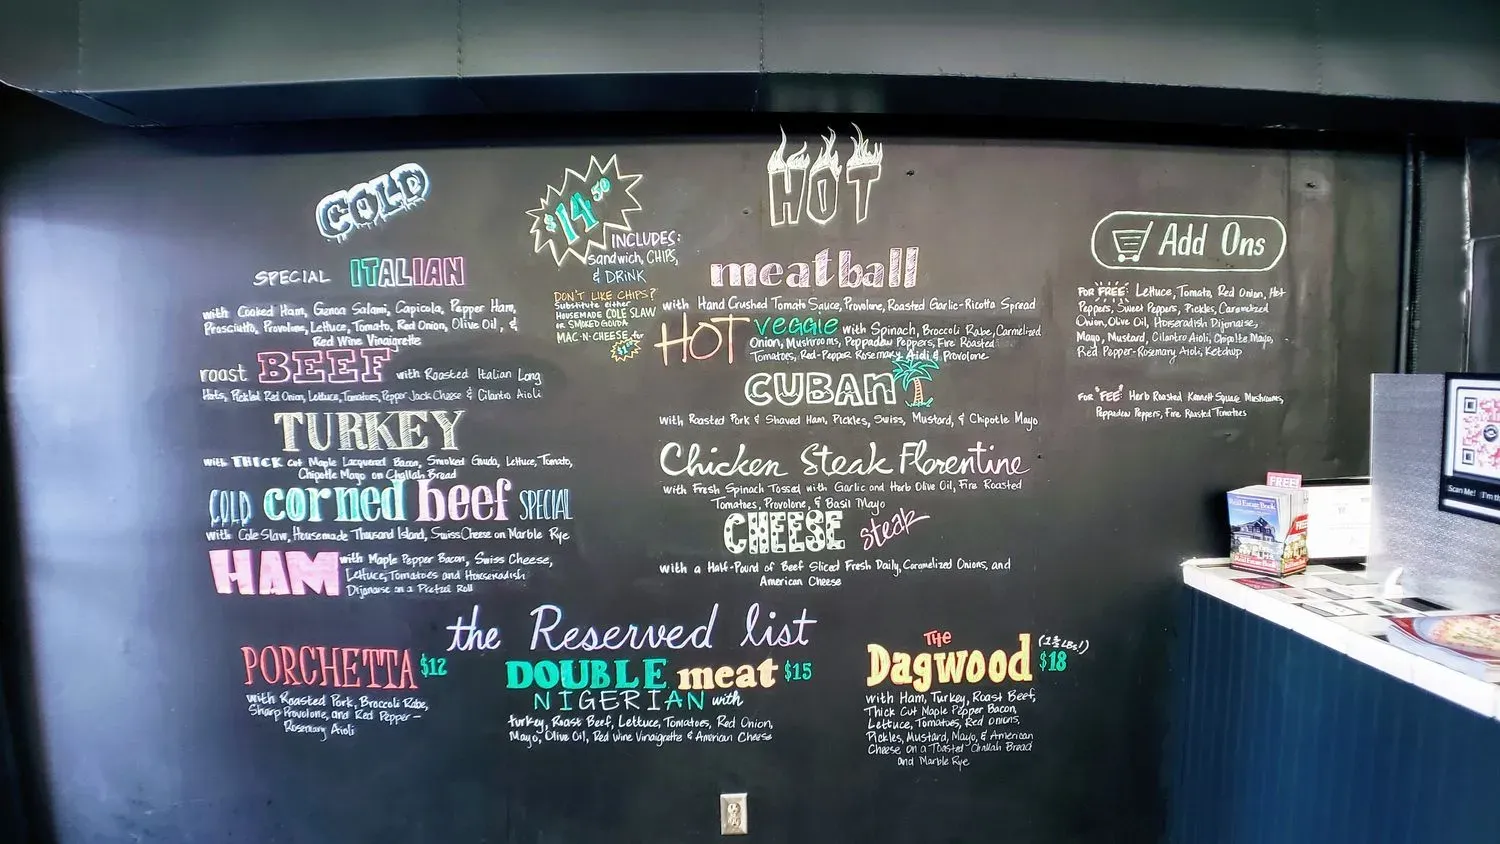 COLD
SPECIAL ITALIAN
with Cooked Ham, Genoa Salami, Capicola, Pepper Ham,
Prosciutto, Provolone, Lettuce, Tomato, Red Onion, Olive Oil, &
Red Wine Vinaigrette
roast BEEF with Roasted Italian Long
Hots, Pickled Red Onion, Lettuce, Tomatoes, Pepper Jack Cheese & Cilantro Aioli
TURKEY
with THICK cut Maple Lacquered Bacon, Smoked Gouda, Lettuce, Tomato,
Chipotle Mayo on Challah Bread
COLD corned beef SPECIAL
with Cole Slaw, Housemade Thousand Island, Swiss Cheese on Marble Rye
HAM with Maple Pepper Bacon, Swiss Cheese,
Lettuce, Tomatoes and Horseradish
Dijonaise on a Pretzel Roll
$14.50
INCLUDES:
Sandwich, CHIPS,
& DRINK
DON'T LIKE CHIPS?
Substitute either
HOUSEMADE COLE SLAW
or SMOKED GOUDA
MAC-N-CHEESE for
HOT
meatball
with Hand Crushed Tomato Sauce, Provolone, Roasted Garlic-Ricotta Spread
HOT VEGGIE with Spinach, Broccoli Rabe, Carmelized
Onion, Mushrooms, Peppadew Peppers, Fire Roasted
Tomatoes, Red-Pepper Rosemary Aioli & Provolone
CUBAN
with Roasted Pork & Shaved Ham, Pickles, Swiss, Mustard, & Chipotle Mayo
Chicken Steak Florentine
with Fresh Spinach Tossed with Garlic and Herb Olive Oil, Fire Roasted
Tomatoes, Provolone, & Basil Mayo
CHEESE steak
with a Half-Pound of Beef Sliced Fresh Daily, Caramelized Onions, and
American Cheese
Add Ons
FOR FREE: Lettuce, Tomato, Red Onion, Hot
Peppers, Sweet Peppers, Pickles, Caramelized
Onion, Olive Oil, Horseradish Dijonaise,
Mayo, Mustard, Cilantro Aioli, Chipotle Mayo,
Red Pepper-Rosemary Aioli, Ketchup
FOR "FEE": Herb Roasted Kennett Square Mushrooms,
Peppadew Peppers, Fire Roasted Tomatoes
the Reserved list
PORCHETTA $12
with Roasted Pork, Broccoli Rabe,
Sharp Provolone, and Red Pepper-
Rosemary Aioli
DOUBLE meat $15
NIGERIAN with
turkey, Roast Beef, Lettuce, Tomatoes, Red Onion,
Mayo, Olive Oil, Red Wine Vinaigrette & American Cheese
THE
Dagwood $18
with Ham, Turkey, Roast Beef,
Thick Cut Maple Pepper Bacon,
Lettuce, Tomatoes, Red Onions,
Pickles, Mustard, Mayo, & American
Cheese on a Toasted Challah Bread
and Marble Rye
FREE!
Real Estate Book
FREE
Scan Me!